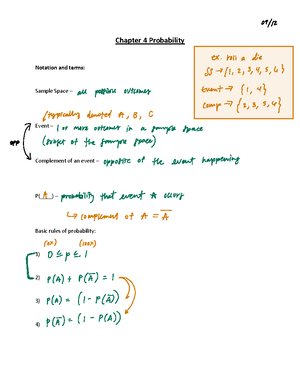 09/12
Chapter 4 Probability
ex. roll a die
SS → {1, 2, 3, 4, 5, 6}
Event → {1, 4}
Comp → {2, 3, 5, 6}
Notation and terms:
Sample Space – all possible outcomes
(typically denoted A, B, C
Event – 1 or more outcomes in a sample space
(subset of the sample space)
opp
Complement of an event – opposite of the event happening
P(A) – probability that event A occurs
↳ complement of A = A̅
Basic rules of probability:
(0%) (100%)
1) 0 ≤ p ≤ 1
2) P(A) + P(A̅) = 1
3) P(A) = (1 - P(A̅))
4) P(A̅) = (1 - P(A))